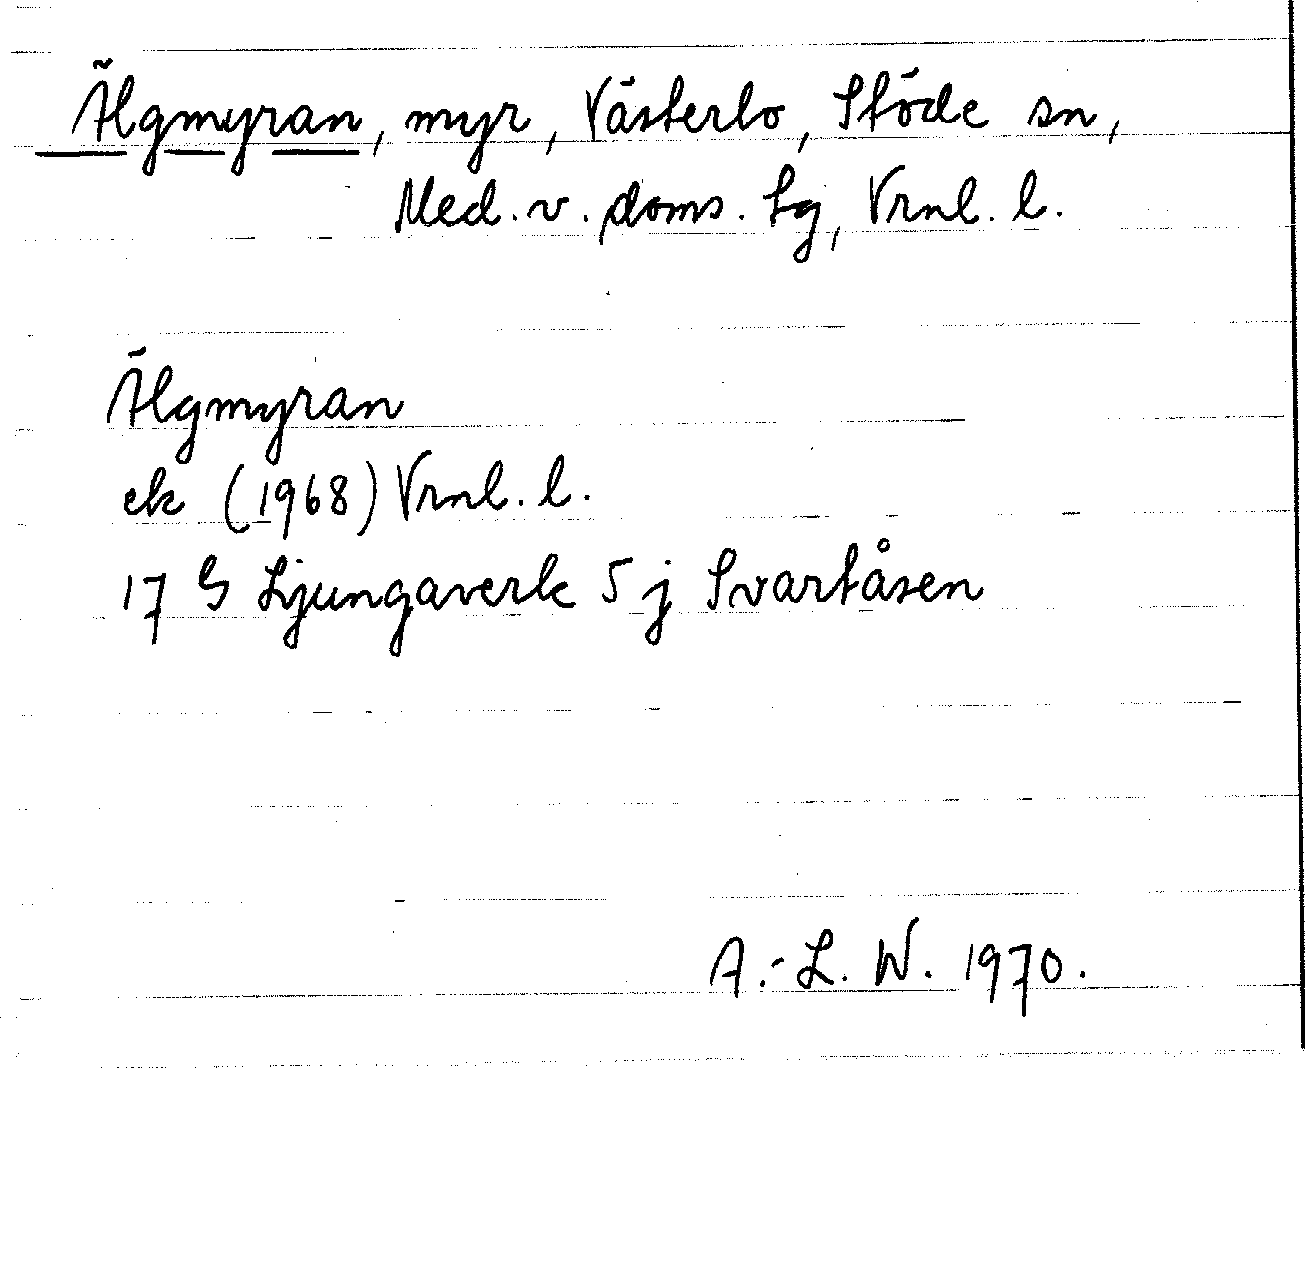 Älgmyran, myr, Västerlo, Stöde sn,
Med. v. doms. lg, Vrnl. l.
Älgmyran
ek (1968) Vrnl. l.
17 G Ljungaverk 5 j Svartåsen
A.-L. W. 1970.